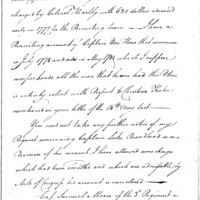 charged by Colonel Hartly with 620 dollars advanced
early in 1777 for the Recruiting service — I have a
Recruiting account of Captain
July 1778 and in May 1781 which I suppose
comprehends all the men that he ever had this Return
is entirely silent with Respect to Christian
mentioned in your letter of the 16th Inst.
You need not take any further notice of my
Request concerning Captain Luke as on a
Revision of his account I have allowed some charges
which had been omitted and which are admissible by
Acts of Congress his account is now stated —
Cap. Samuel Moore of the 3d Regiment a